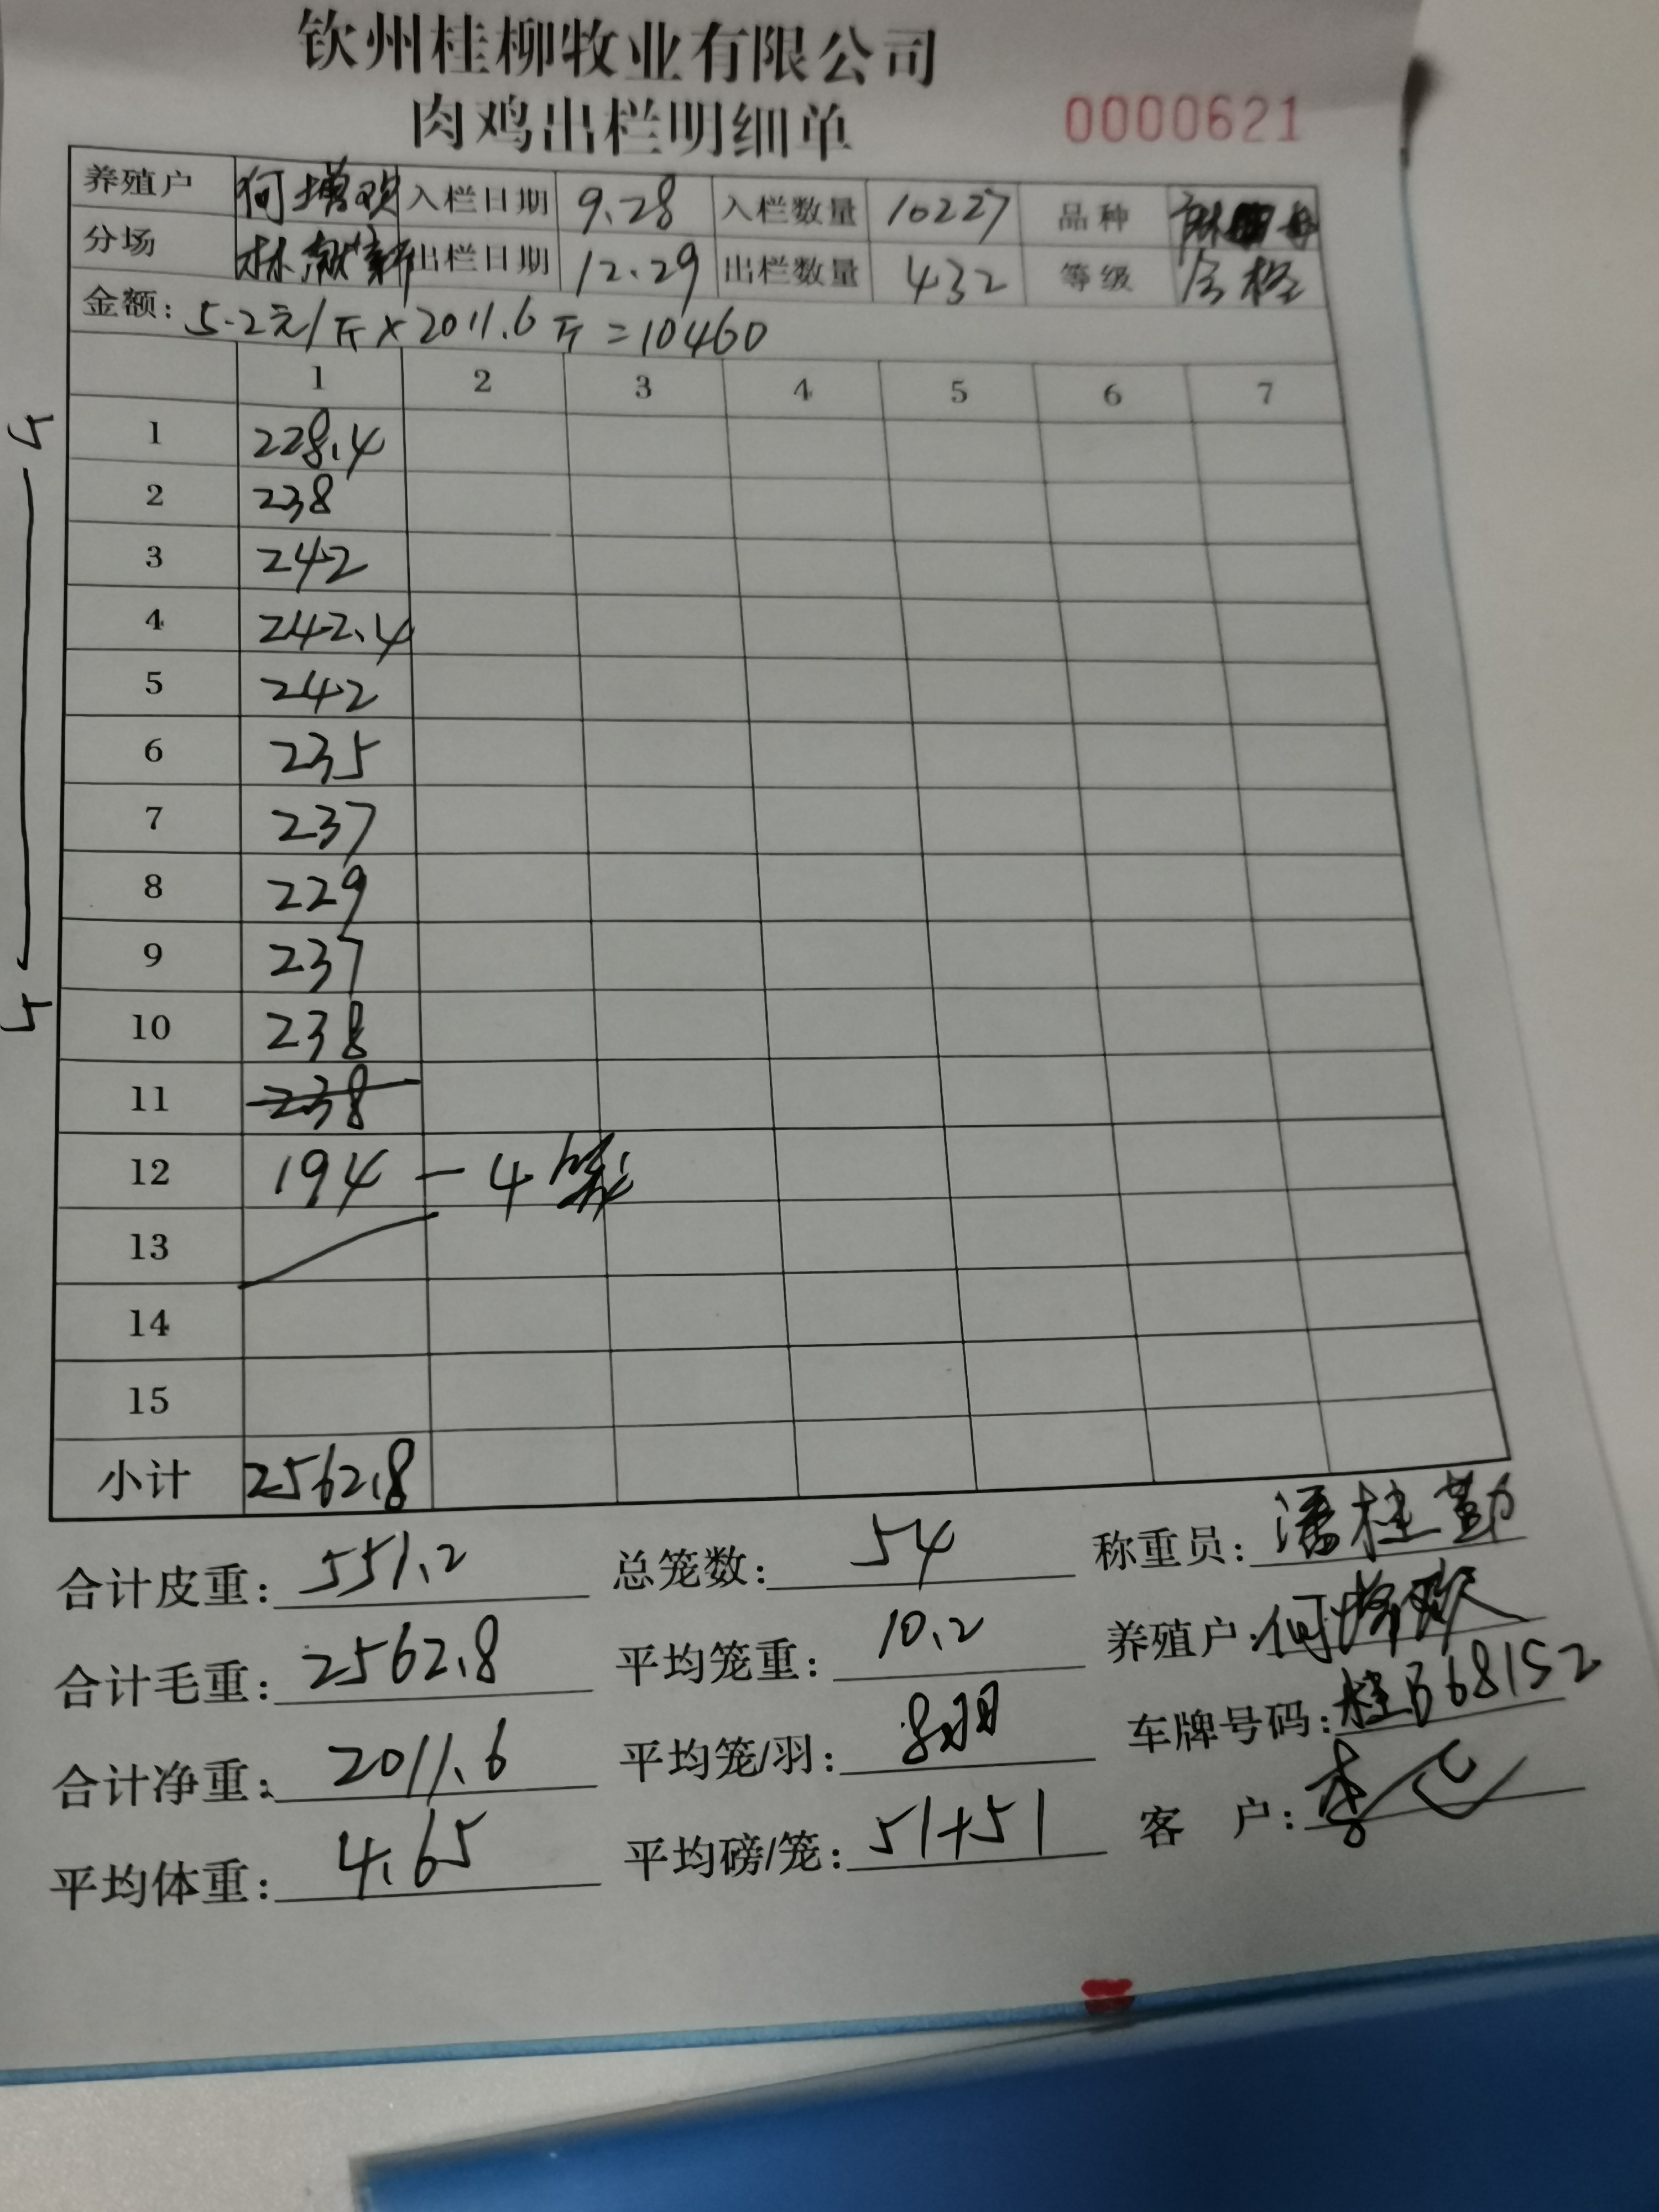 钦州桂柳牧业有限公司
肉鸡出栏明细单 0000621
养殖户 何增欢 入栏日期 9.28 入栏数量 10227 品种
分场 林 出栏日期 12.29 出栏数量 432 等级 合格
金额: 5.2元/斤×2011.6斤=10460
1 2 3 4 5 6 7
5
1 228.4
2 238
3 242
4 242.4
5 242
6 235
7 237
8 229
9 237
10 238
5
11 238
12 194 — 4笼
13
14
15
小计 2562.8
合计皮重: 551.2 总笼数: 54 称重员: 潘桂勤
合计毛重: 2562.8 平均笼重: 10.2 养殖户: 何增欢
合计净重: 2011.6 平均笼/羽: 8羽 车牌号码: 桂B68152
平均体重: 4.65 平均磅/笼: 51+51 客 户: 李